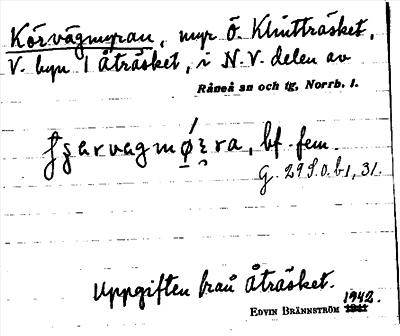 Körvägmyran, myr Ö. Klintträsket,
V. byn i Åträsket, i N.V. delen av
Råneå sn och tg, Norrb. l.
bf. fem.
G. 29 S.O. b 1, 31.
Uppgiften från Åträsket.
1942.
EDVIN BRÄNNSTRÖM 1941